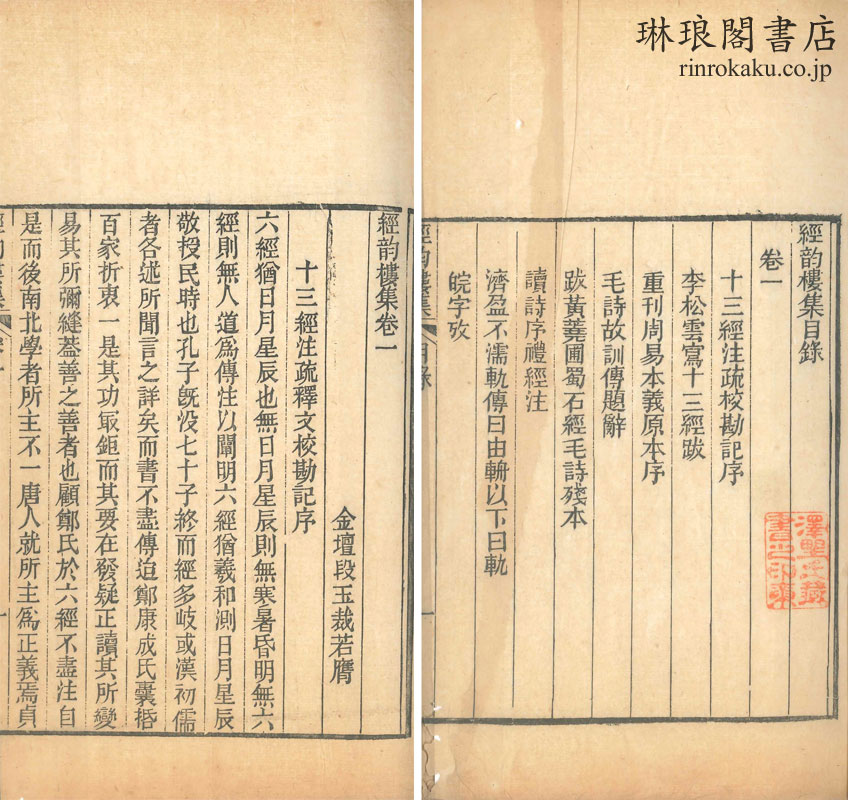 琳琅閣書店
rinrokaku.co.jp
經韵樓集目錄
卷一
十三經注疏校勘記序
李松雲寫十三經跋
重刊周易本義原本序
毛詩故訓傳題辭
跋黃蕘圃蜀石經毛詩殘本
讀詩序禮經注
濟盈不濡軌傳曰由輈以下曰軌
皖字攷
經韵樓集
目錄
一
經韵樓集卷一
金壇段玉裁若膺
十三經注疏釋文校勘記序
六經猶日月星辰也無日月星辰則無寒暑昏明無六
經則無人道爲傳注以闡明六經猶羲和測日月星辰
敬授民時也孔子旣没七十子終而經多岐或漢初儒
者各述所聞言之詳矣而書不盡傳迨鄭康成氏囊括
百家折衷一是其功冣鉅而其要在發疑正讀其所變
易其所彌縫葢善之善者也顧鄭氏於六經不盡注自
是而後南北學者所主不一唐人就所主爲正義焉貞